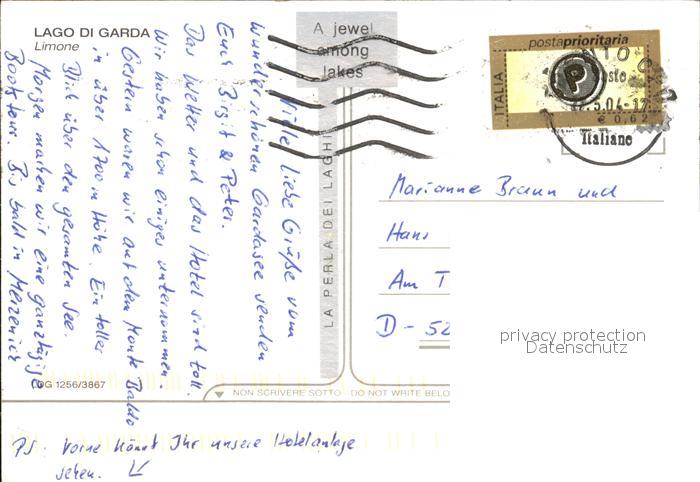 LAGO DI GARDA
Limone
A jewel
among
lakes
postaprioritaria
ITALIA
P
5.04-17
€ 0,62
Italiane
LA PERLA DEI LAGHI
Viele liebe Grüße vom
wunderschönen Gardasee senden
Euch Birgit & Peter.
Das Wetter und das Hotel sind toll.
Wir haben schon einiges unternommen
Gestern waren wir auf dem Monte Baldo
in über 1700 m Höhe. Ein toller
Blick über den gesamten See.
Morgen machen wir eine ganztägige
Bootstour. Bis bald in Merzenich
Marianne Braun und
Hans
Am T
D - 52
privacy protection
Datenschutz
LDG 1256/3867
NON SCRIVERE SOTTO - DO NOT WRITE BELO
PS: Vorne könnt Ihr unsere Hotelanlage
sehen.